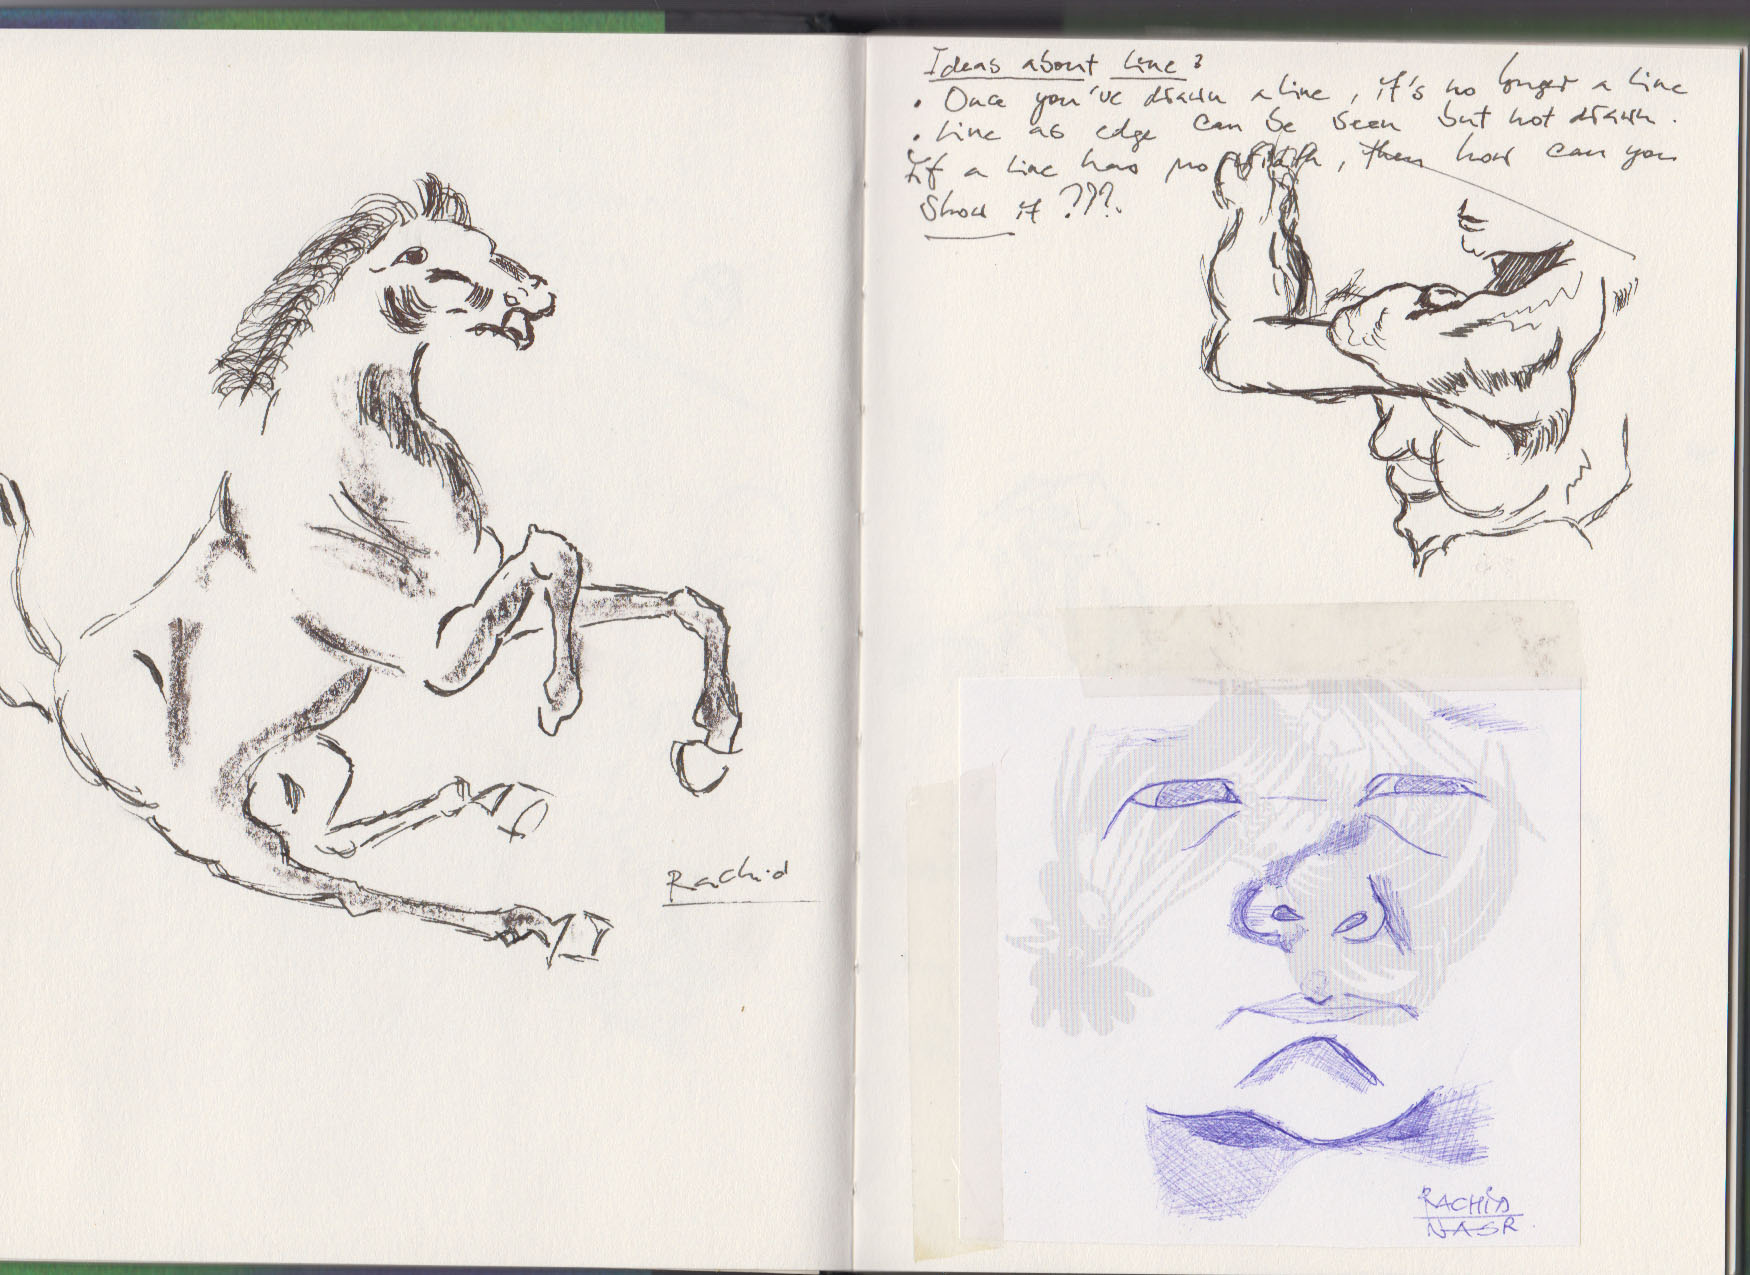 Ideas about Line?
• Once you've drawn a line, it's no longer a line
• Line as edge can be seen but not drawn.
If a line has no width, then how can you
show it ???.
Rachid
RACHID
NASR